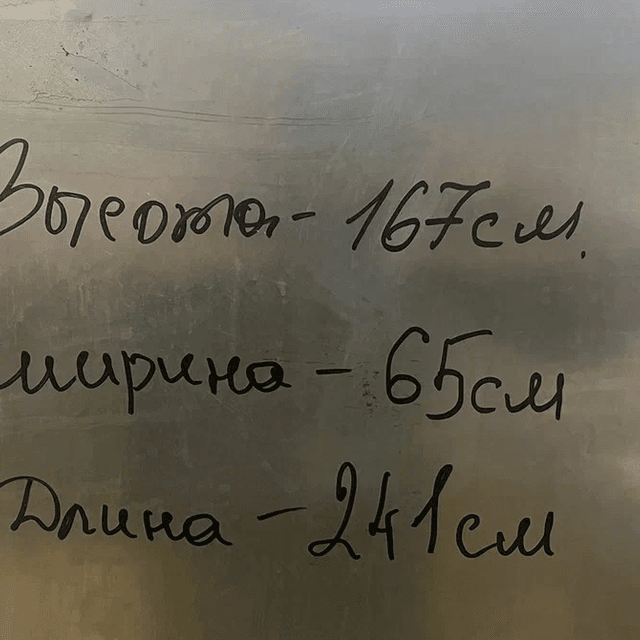 Высота - 167см.
ширина - 65см
Длина - 241см